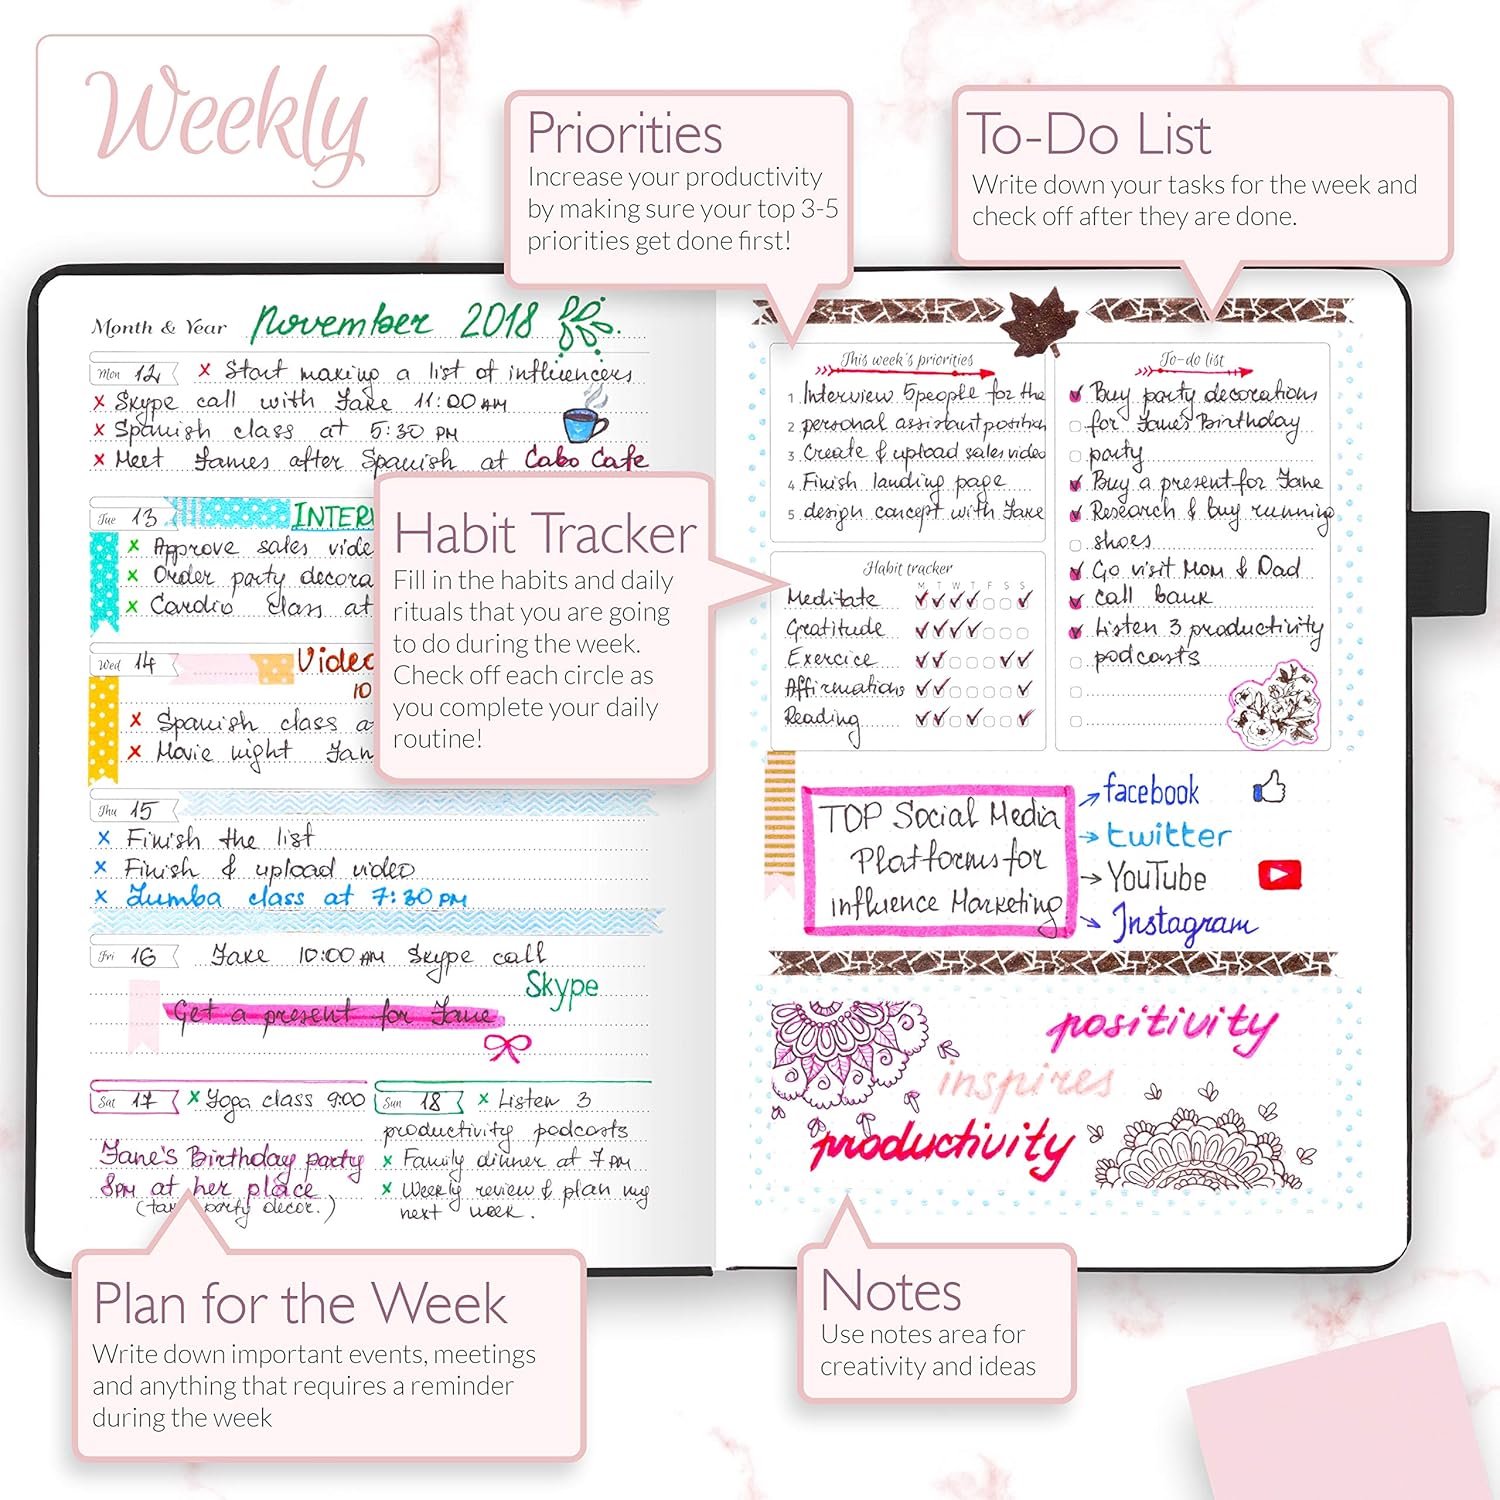 Weekly
Priorities
Increase your productivity
by making sure your top 3-5
priorities get done first!
To-Do List
Write down your tasks for the week and
check off after they are done.
Month & Year november 2018
Mon 12 x Start making a list of influencers
x Skype call with Jake 11:00 AM
x Spanish class at 5:30 PM
x Meet James after Spanish at Cabo Cafe
Tue 13 INTER
x Approve sales vide
x Order party decora
x Cardio class at
Wed 14 Video
10
x Spanish class a
x Movie night Jan
Thu 15
x Finish the list
x Finish & upload video
x Zumba class at 7:30 PM
Fri 16 Jake 10:00 AM Skype call
Skype
Get a present for Jane
Sat 17 x Yoga class 9:00
Jane's Birthday party
8PM at her place
party decor.)
Sun 18 x Listen 3
productivity podcasts
x Family dinner at 7 PM
x Weekly review & plan my
next week.
Habit Tracker
Fill in the habits and daily
rituals that you are going
to do during the week.
Check off each circle as
you complete your daily
routine!
This week's priorities
1 Interview 5people for the
2 personal assistant position
3 Create & upload sales video
4 Finish landing page
5 design concept with Jake
Habit tracker
M T W T F S S
Meditate
Gratitude
Exercice
Affirmations
Reading
To-do list
Buy party decorations
for Jane's Birthday
party
Buy a present for Jane
Research & buy running
shoes
Go visit Mom & Dad
call bank
Listen 3 productivity
podcasts
TOP Social Media
Platforms for
influence Marketing
facebook
twitter
YouTube
Instagram
positivity
inspires
productivity
Plan for the Week
Write down important events, meetings
and anything that requires a reminder
during the week
Notes
Use notes area for
creativity and ideas